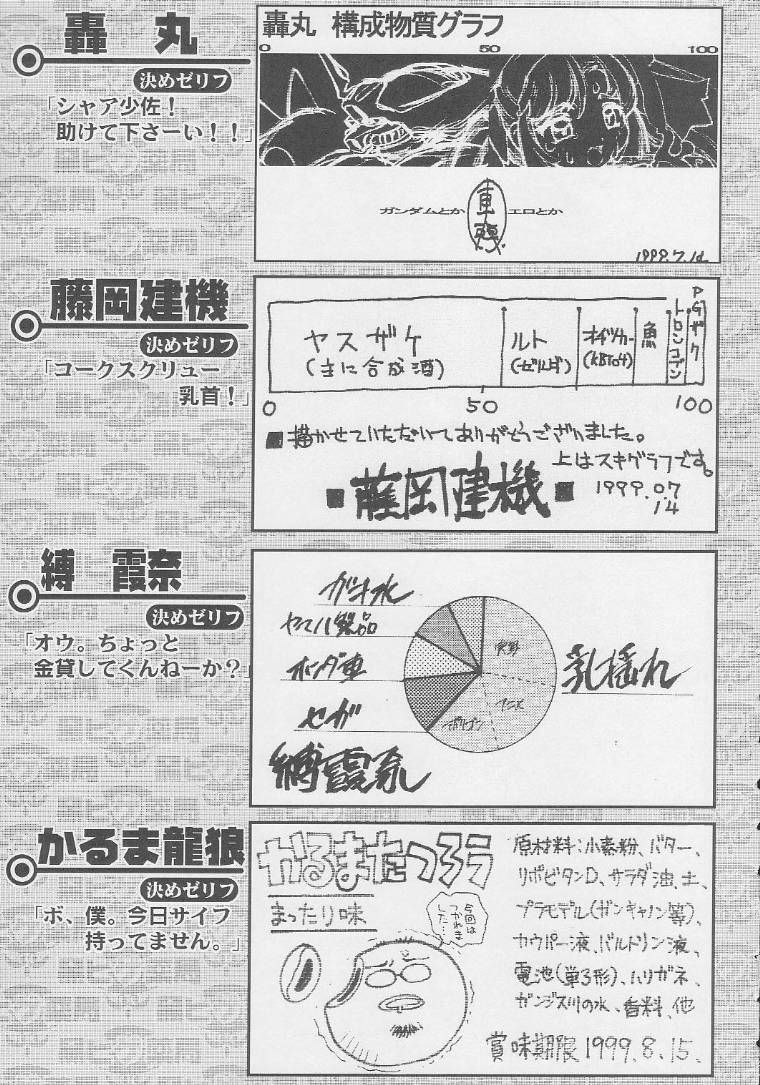 轟丸
決めゼリフ
「シャア少佐！
助けて下さーい！！」
轟丸 構成物質グラフ
0 50 100
ガンダムとか
エロとか
1999.7.14
藤岡建機
決めゼリフ
「コークスクリュー
乳首！」
ヤスザケ
(主に合成酒)
ルト
(ゼルダ)
魚
トロンコブン
PGザク
0 50 100
■描かせていただいてありがとうございました。
上はスキグラフです。
■藤岡建機■ 1999.07
14
縛 霞奈
決めゼリフ
「オウ。ちょっと
金貸してくんねーか？」
ガキ水
ヤマハ製品
ホンダ車
セガ
実写
アニメ
ポリゴン
乳揺れ
縛霞奈
かるま龍狼
決めゼリフ
「ボ、僕。今日サイフ
持ってません。」
かるまたつろう
まったり味
今回は
つかれま
した…
原材料：小麦粉、バター、
リポビタンD、サラダ油、土、
プラモデル(ガンキャノン等)、
カウパー液、バルトリン液、
電池(単3形)、ハリガネ、
ガンジス川の水、香料、他
賞味期限1999.8.15.